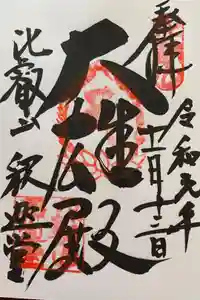 奉拝
令和元年
十二月十三日
大雄殿
比叡山
釈迦堂